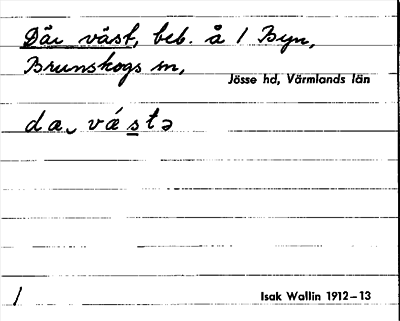 Där väst, beb. å 1 Byn,
Brunskogs sn,
Jösse hd, Värmlands län
dæ‿ vá s̲tə
1
Isak Wallin 1912–13